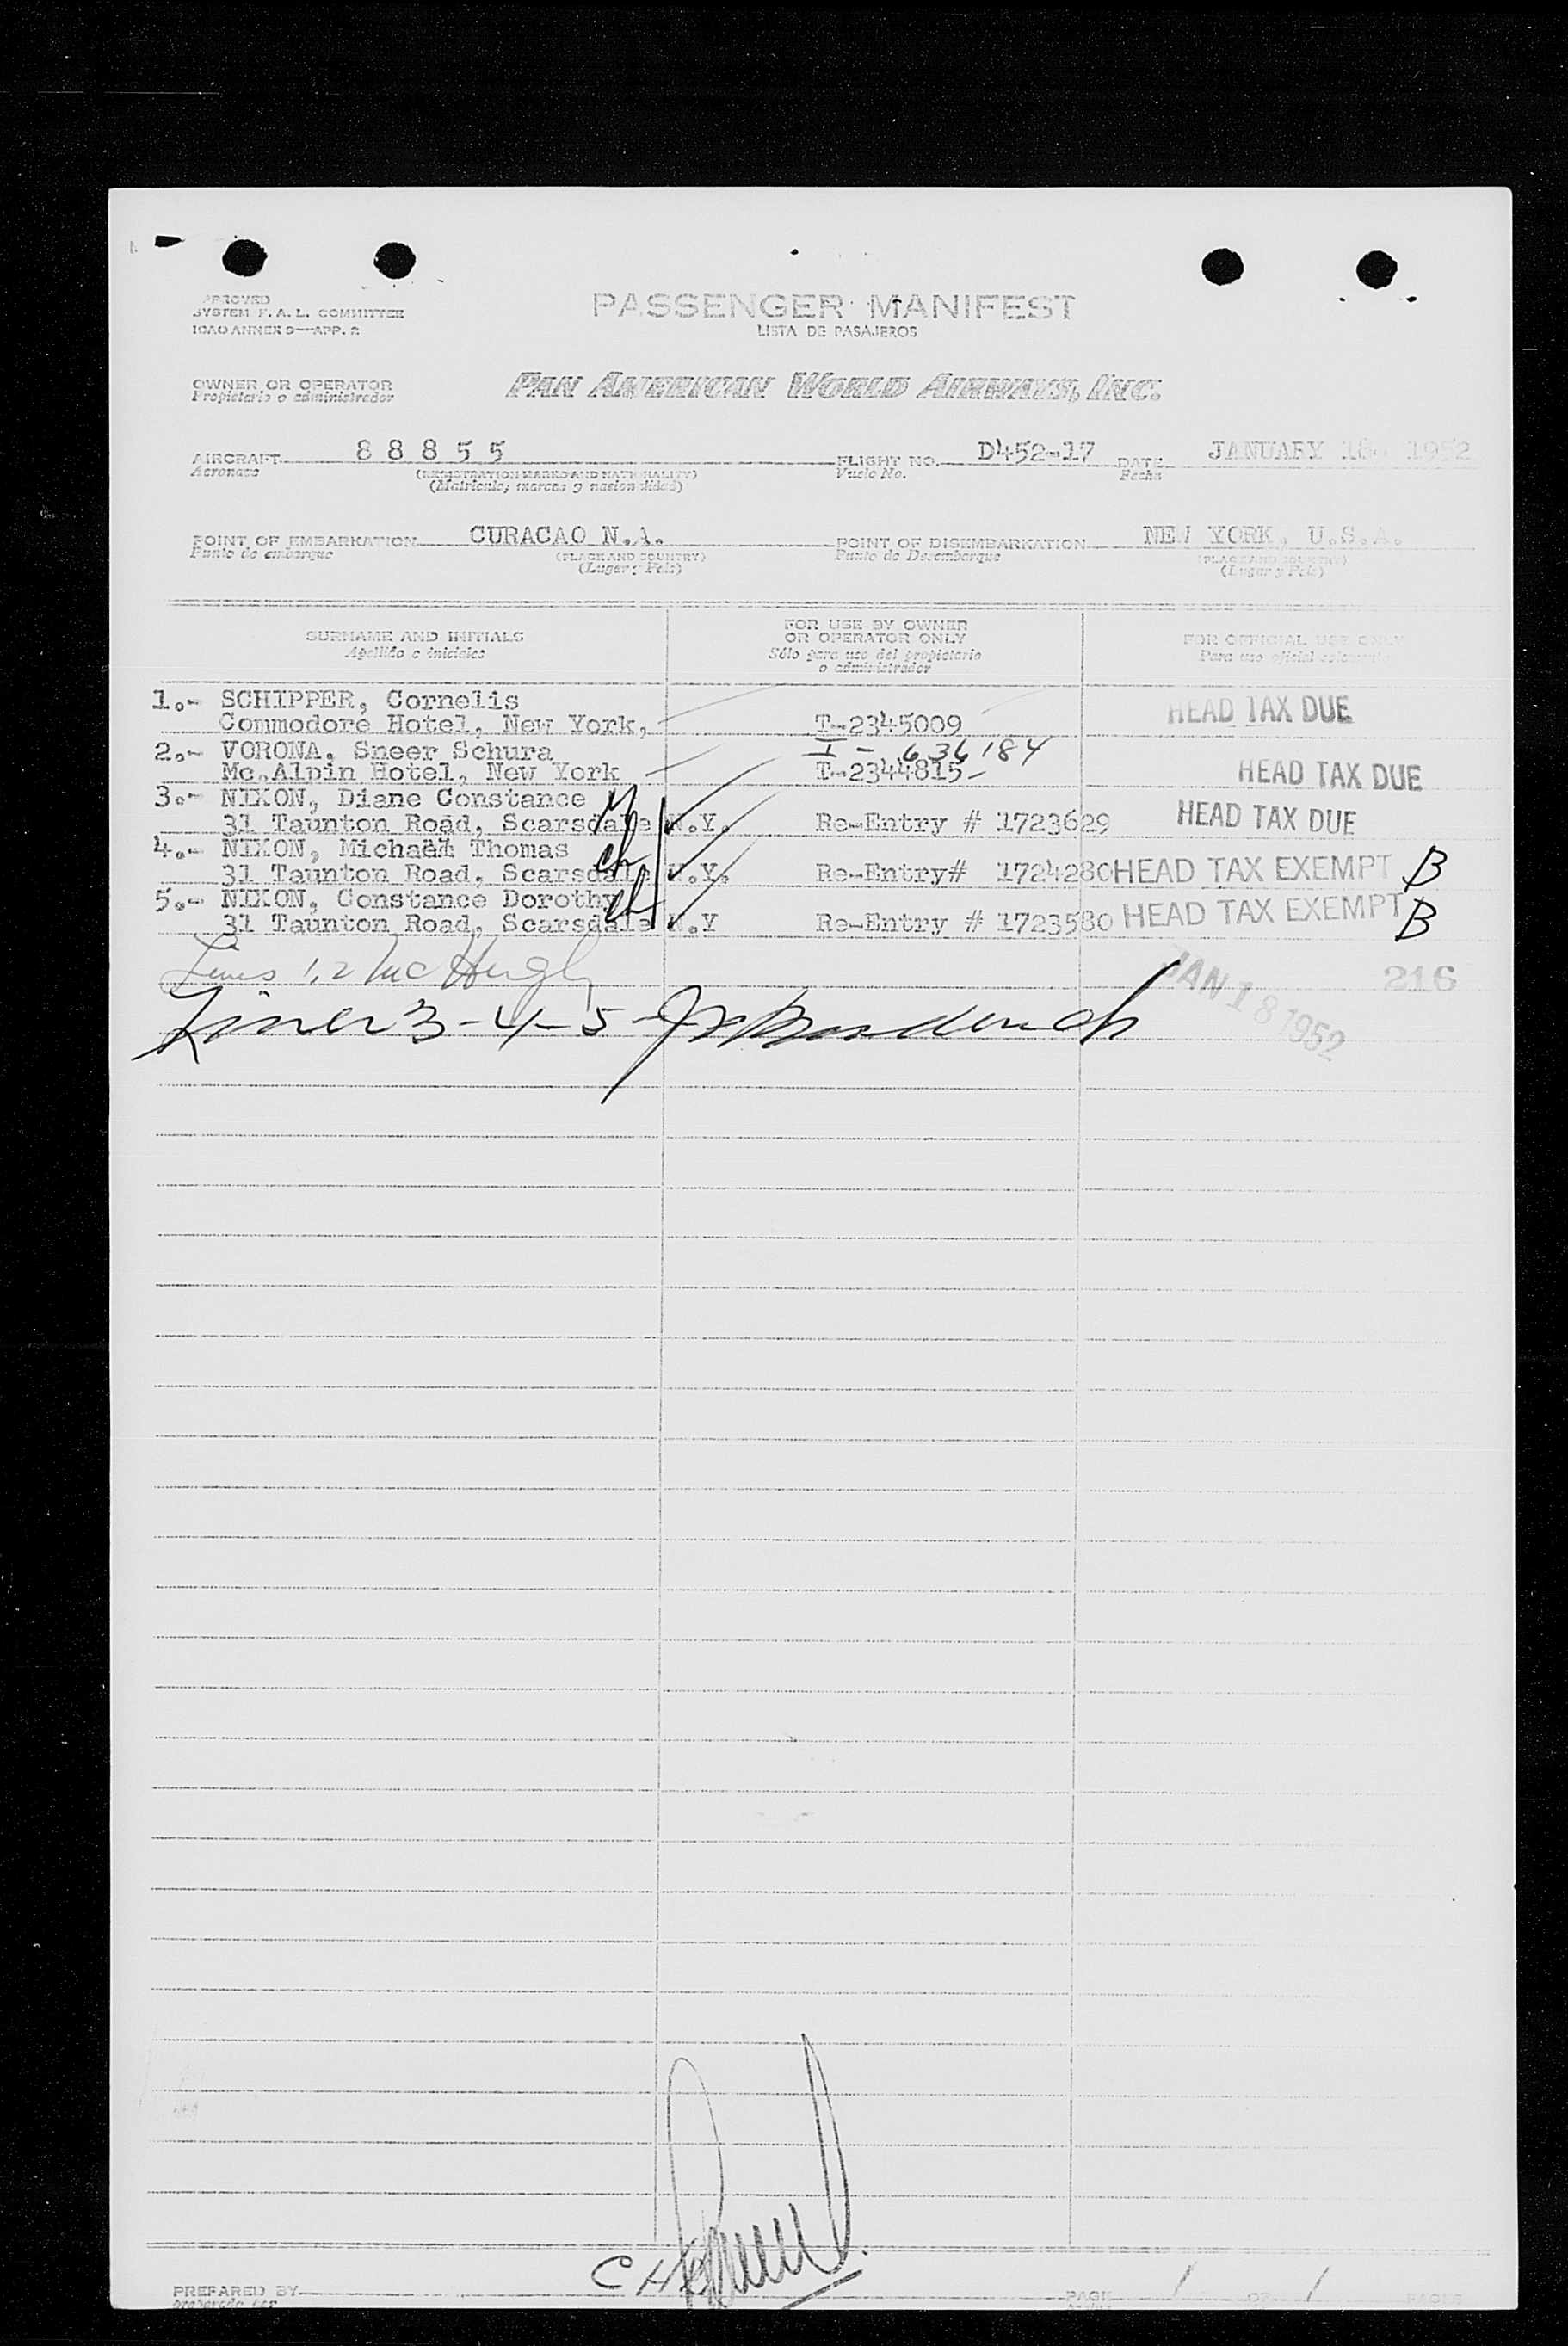 APPROVED
SYSTEM F. A. L. COMMITTEE
ICAO ANNEX 9—APP. 2
PASSENGER MANIFEST
LISTA DE PASAJEROS
OWNER OR OPERATOR
Propietario o administrador
PAN AMERICAN WORLD AIRWAYS, INC.
AIRCRAFT 8 8 8 5 5
Aeronave
(REGISTRATION MARKS AND NATIONALITY)
(Matricula, marcas y nacionalidad)
FLIGHT NO. D452-17
Vuelo No.
DATE JANUARY 18 1952
Fecha
POINT OF EMBARKATION CURACAO N.A.
Punto de embarque
(PLACE AND COUNTRY)
(Lugar y Pais)
POINT OF DISEMBARKATION NEW YORK, U.S.A.
Punto de Desembarque
(PLACE AND COUNTRY)
(Lugar y Pais)
SURNAME AND INITIALS
Apellido e iniciales
FOR USE BY OWNER
OR OPERATOR ONLY
Sólo para uso del propietario
o administrador
FOR OFFICIAL USE ONLY
Para uso oficial solamente
1.- SCHIPPER, Cornelis
Commodore Hotel, New York, T-2345009 HEAD TAX DUE
2.- VORONA, Sneer Schura I - 636184
Mc.Alpin Hotel, New York T-2344815- HEAD TAX DUE
3.- NIXON, Diane Constance
31 Taunton Road, Scarsdale N.Y. Re-Entry # 1723629 HEAD TAX DUE
4.- NIXON, Michael Thomas ch
31 Taunton Road, Scarsdale N.Y. Re-Entry# 1724280 HEAD TAX EXEMPT B
5.- NIXON, Constance Dorothy ch
31 Taunton Road, Scarsdale N.Y Re-Entry # 1723580 HEAD TAX EXEMPT B
Lines 1,2 McHugh
JAN 18 1952
216
Lines 3-4-5-
CH
PREPARED BY
preparado por
PAGE 1 OF 1 PAGES